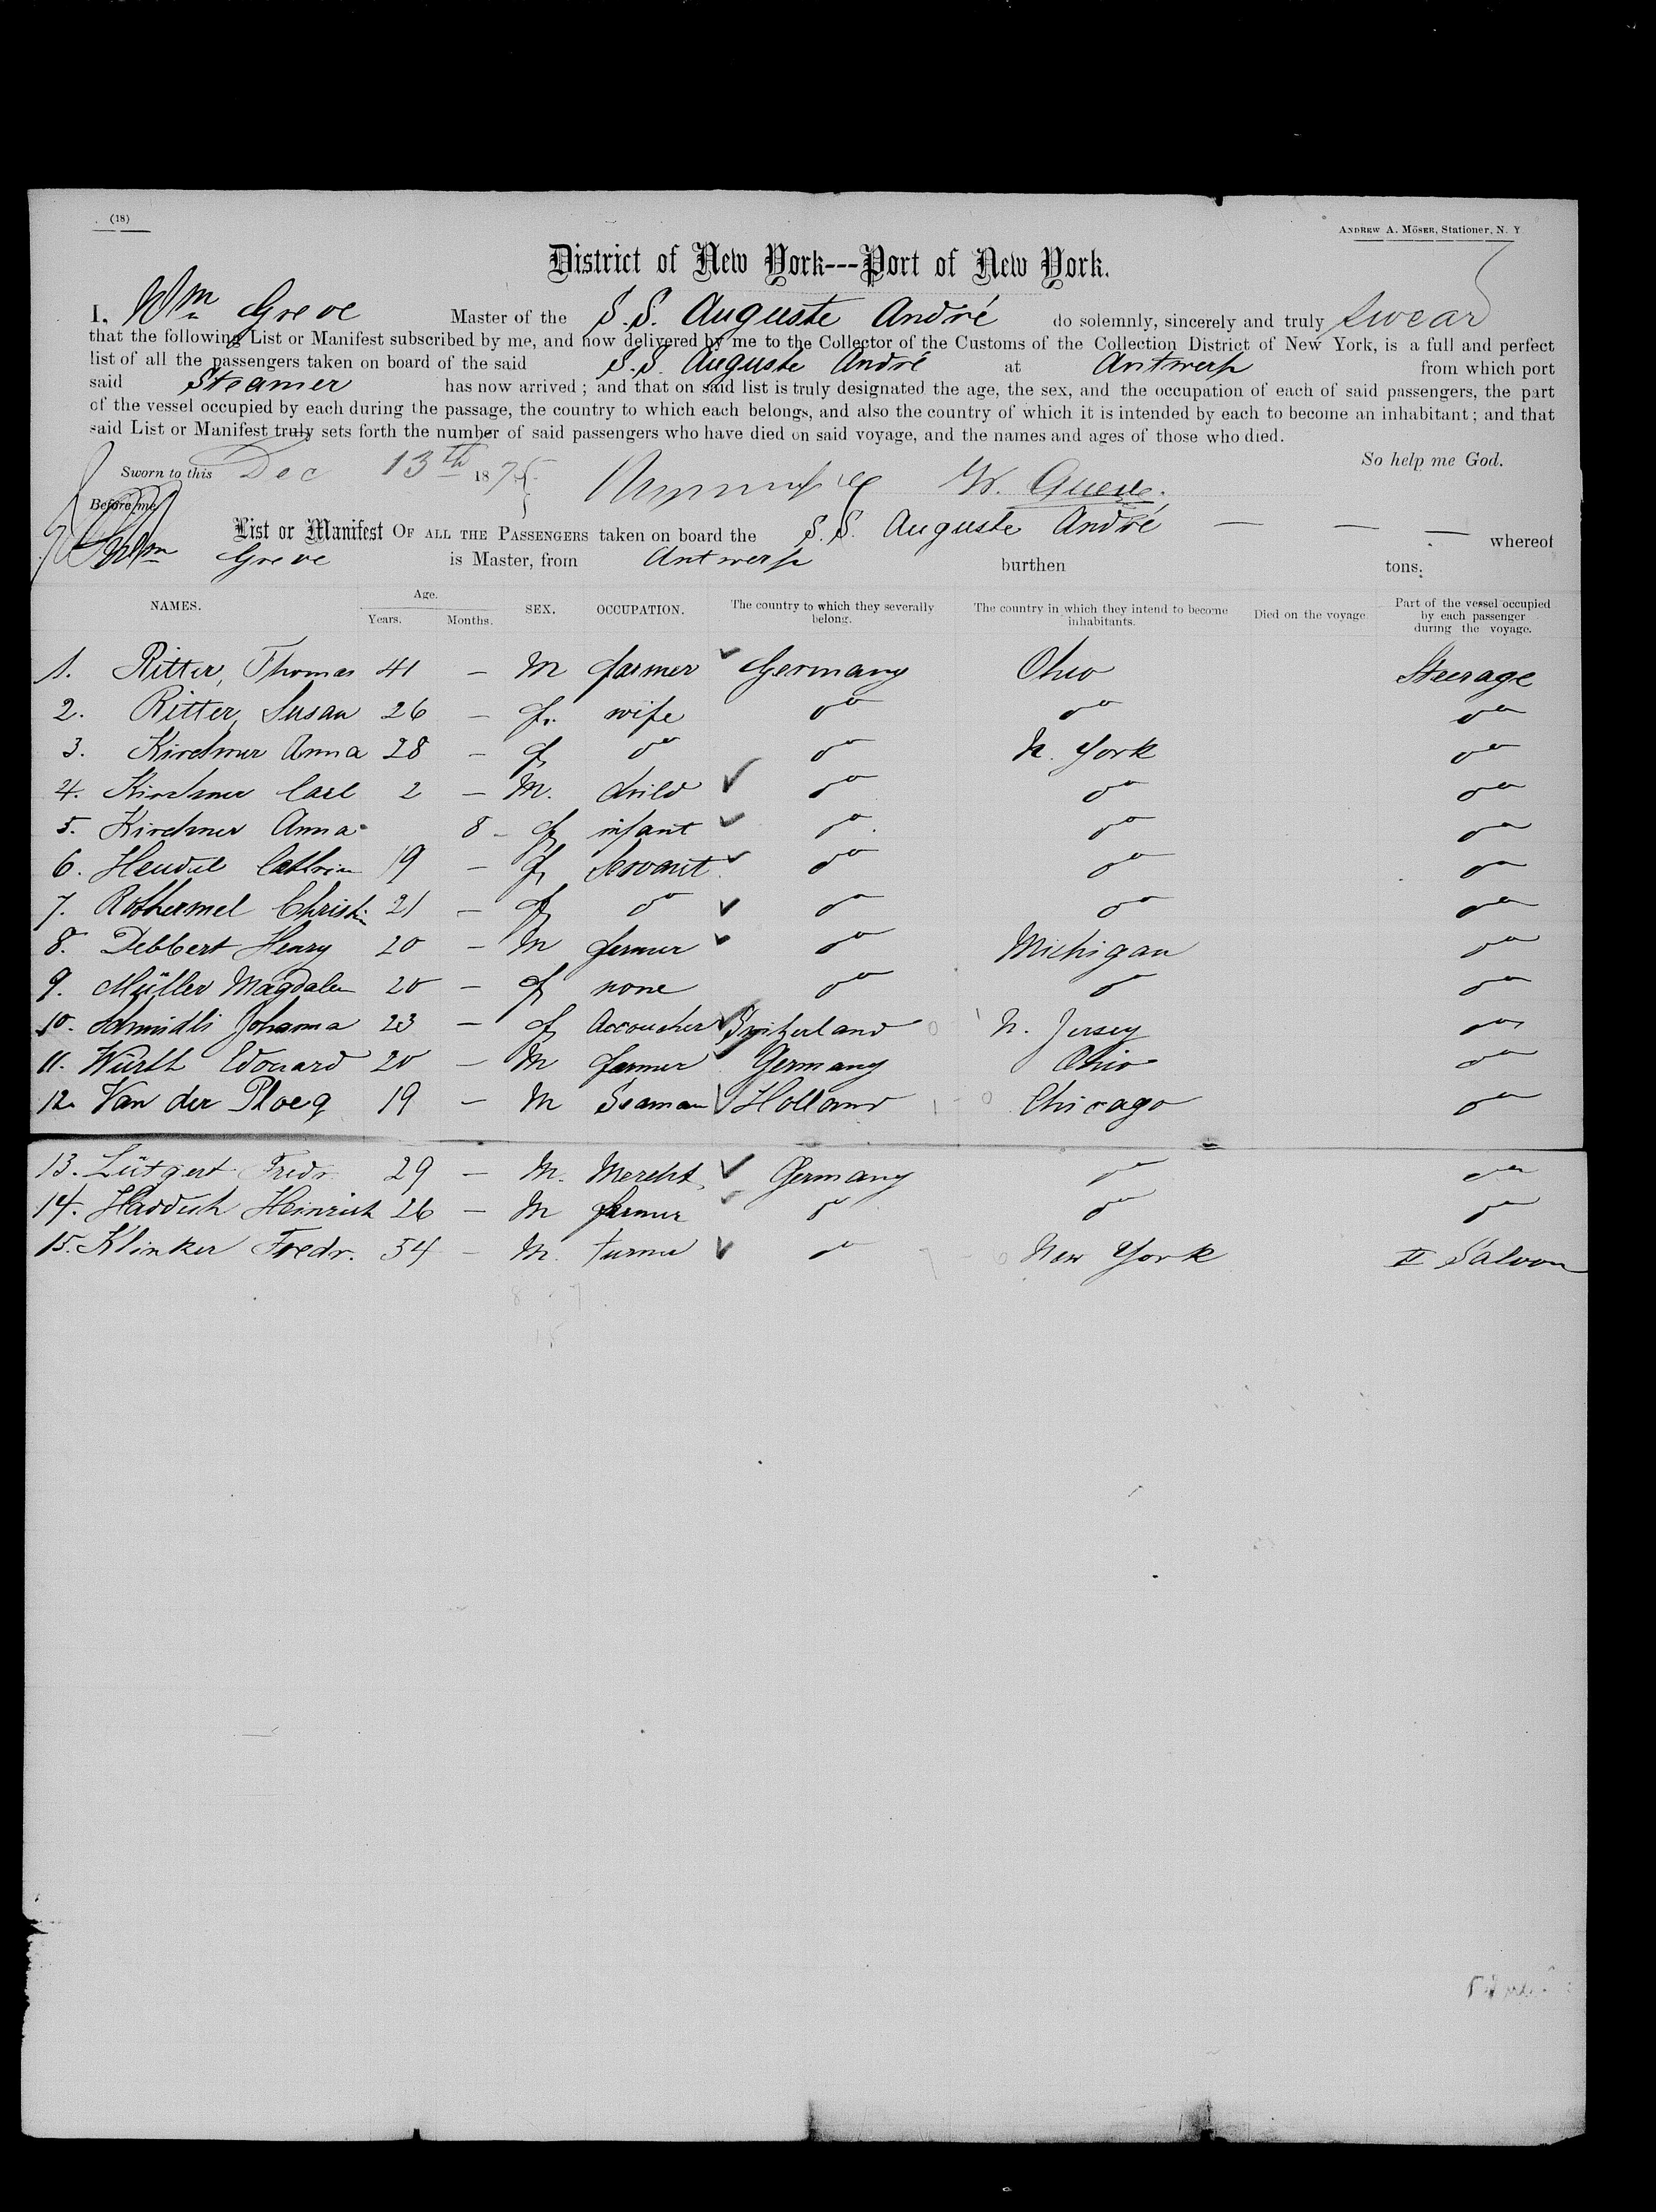 (18)
ANDREW A. MÖSER, Stationer, N. Y.
District of New York---Port of New York.
I, Wm Greve Master of the S.S. Auguste André do solemnly, sincerely and truly swear
that the following List or Manifest subscribed by me, and now delivered by me to the Collector of the Customs of the Collection District of New York, is a full and perfect
list of all the passengers taken on board of the said S.S. Auguste André at Antwerp from which port
said Steamer has now arrived; and that on said list is truly designated the age, the sex, and the occupation of each of said passengers, the part
of the vessel occupied by each during the passage, the country to which each belongs, and also the country of which it is intended by each to become an inhabitant; and that
said List or Manifest truly sets forth the number of said passengers who have died on said voyage, and the names and ages of those who died.
So help me God.
Sworn to this Dec 13th 1875 W. Greve.
Before me
List or Manifest OF ALL THE PASSENGERS taken on board the S.S. Auguste André — — — whereof
Wm Greve is Master, from Antwerp burthen tons.
NAMES. Age. Years. Months. SEX. OCCUPATION. The country to which they severally belong. The country in which they intend to become inhabitants. Died on the voyage Part of the vessel occupied by each passenger during the voyage.
1. Ritter, Thomas 41 — M farmer Germany Ohio Steerage
2. Ritter, Susan 26 — f. wife do do do
3. Kirchner Anna 28 — f do do N. York do
4. Kirchner Carl 2 — M. child do do do
5. Kirchner Anna 8 — f infant do do do
6. Cathrin 19 — f Servant do do do
7. Rothermel Christin 21 — f do do do do
8. Debbert Henry 20 — M farmer do Michigan do
9. Müller Magdalen 20 — f none do do do
10. Schmidli Johanna 23 — f Accoucher Switzerland N. Jersey do
11. Würth Edouard 20 — M farmer Germany Ohio do
12. Van der Ploeg 19 — M Seaman Holland Chicago do
13. Lütgert Fredr. 29 — M. Mercht. Germany do do
14. Haddich Heinrich 26 — M farmer do do do
15. Klinker Fredr. 54 — M. turner do New York II Saloon